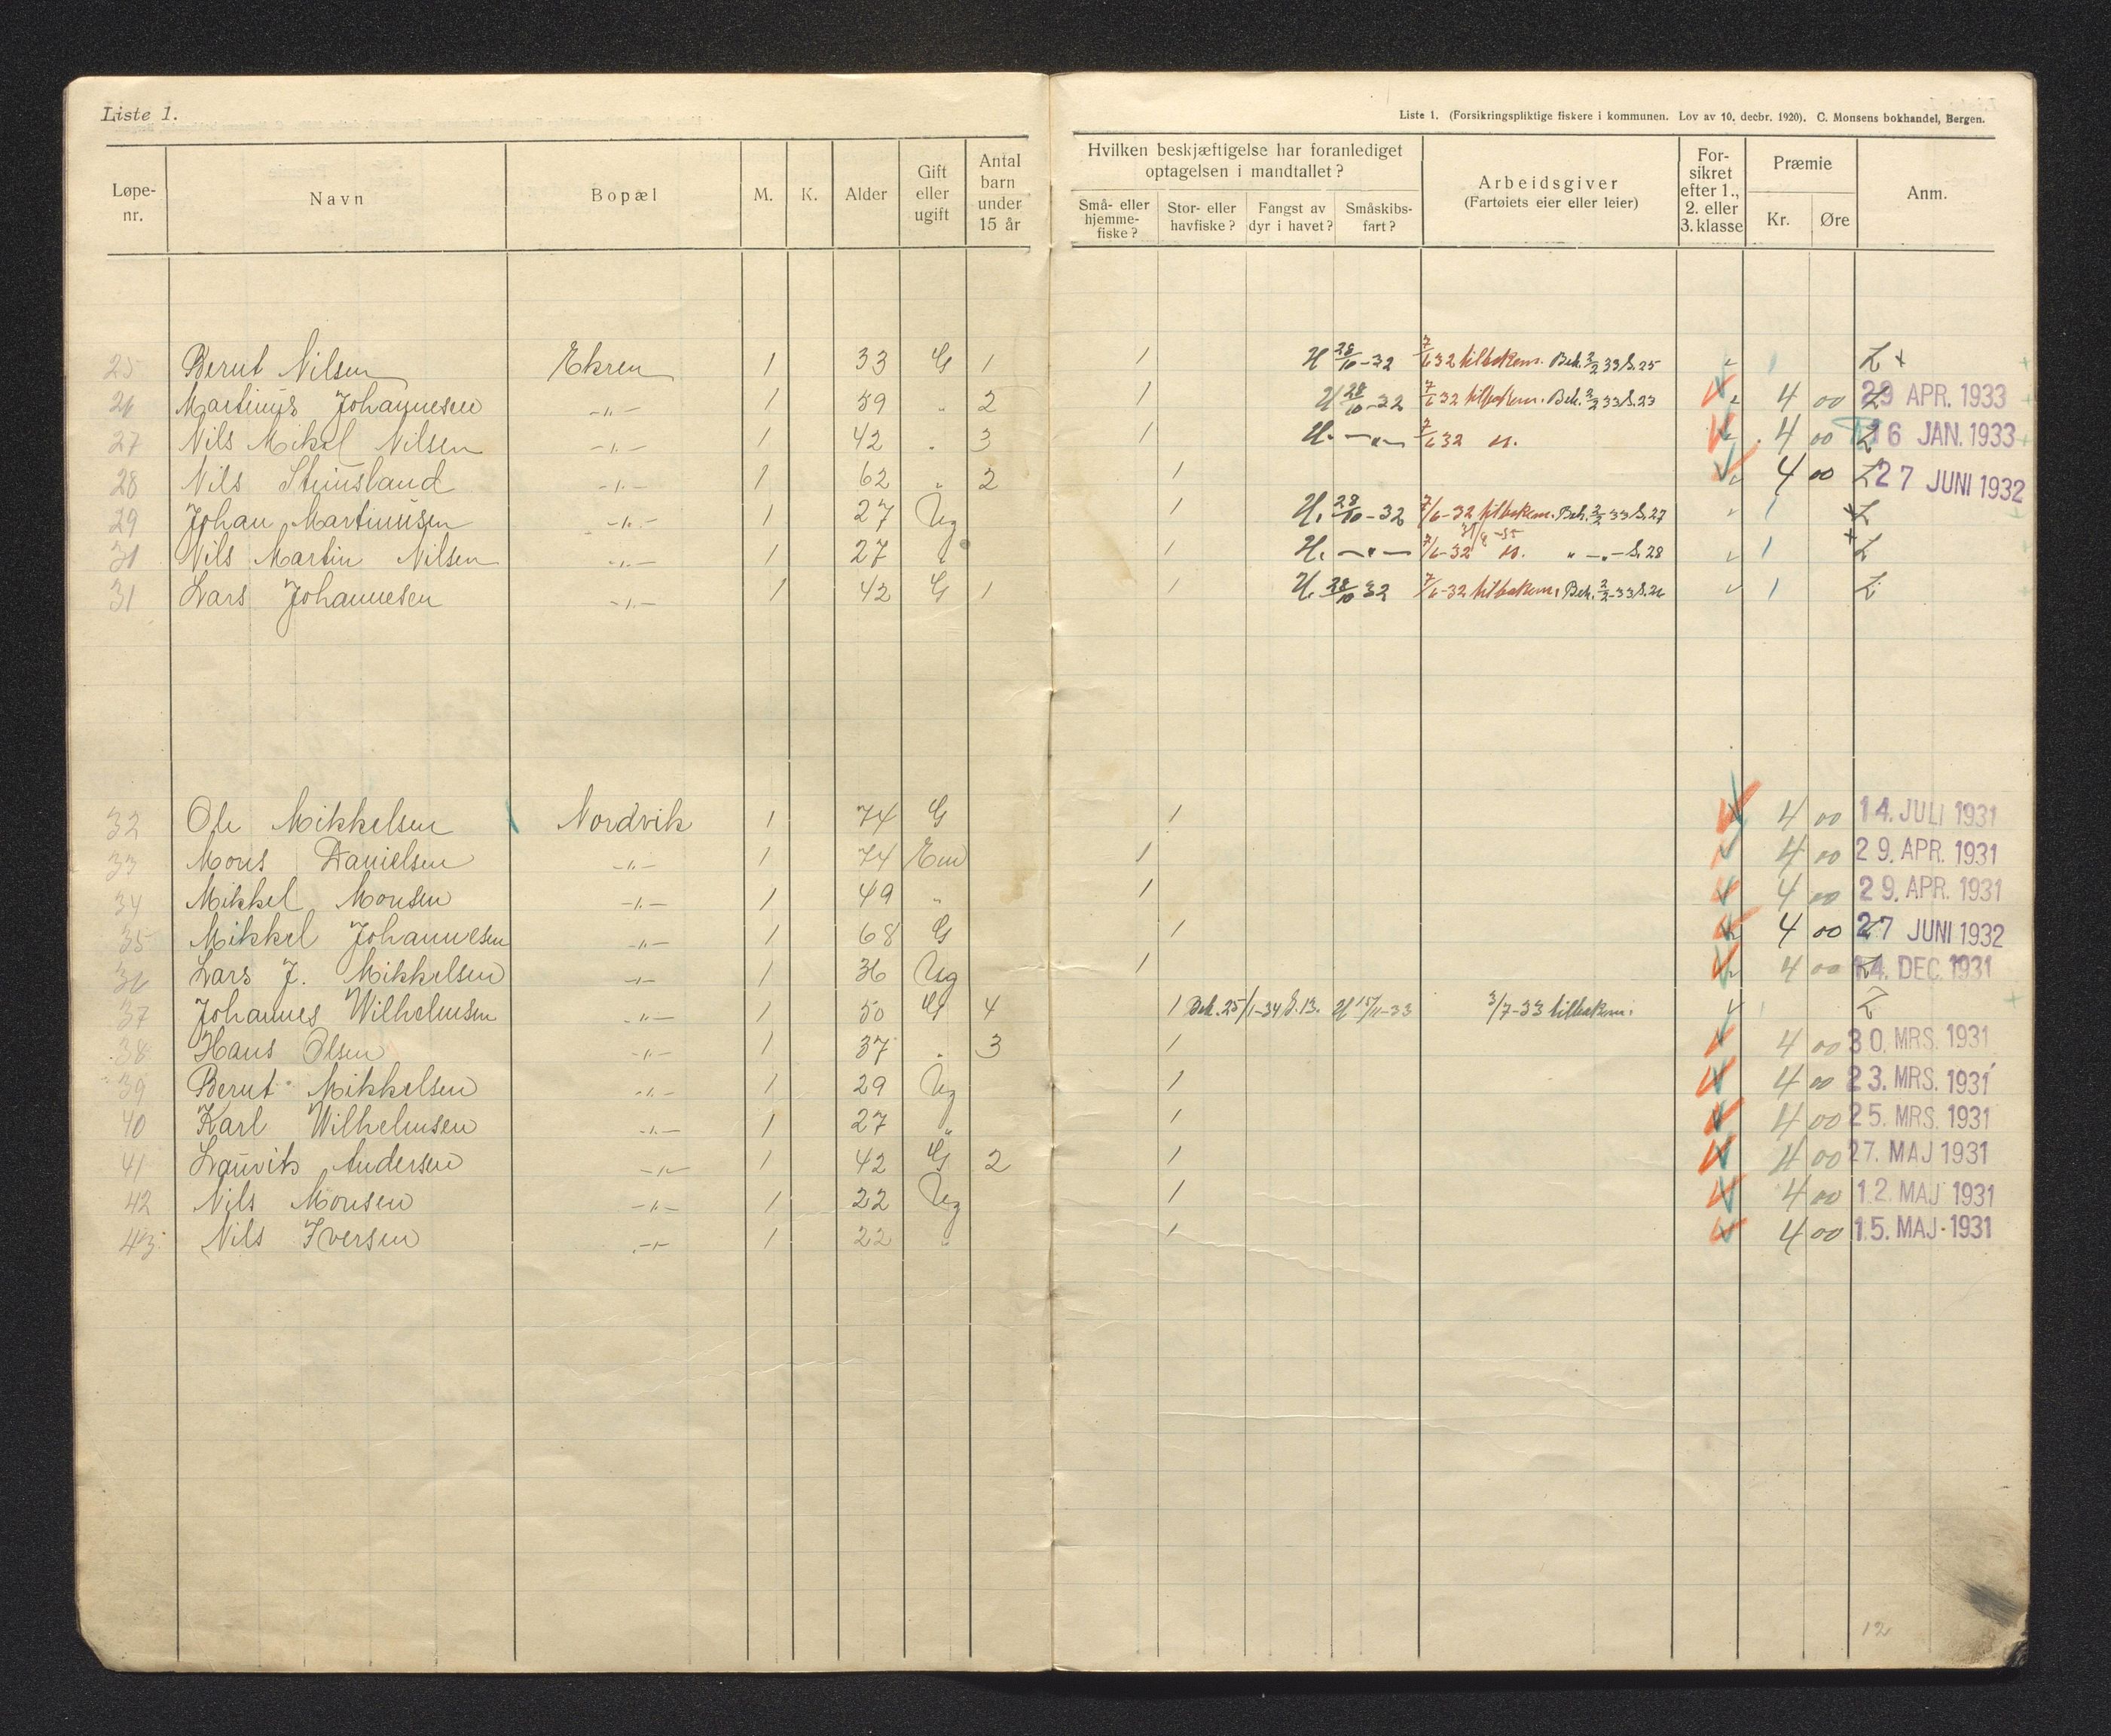 Liste 1.
Liste 1. (Forsikringspliktige fiskere i kommunen. Lov av 10. decbr. 1920). C. Monsens bokhandel, Bergen.
Løpe-nr. Navn Bopæl M. K. Alder Gift eller ugift Antal barn under 15 år
Hvilken beskjæftigelse har foranlediget optagelsen i mandtallet?
Små- eller hjemme-fiske? Stor- eller havfiske? Fangst av dyr i havet? Småskibs-fart?
Arbeidsgiver (Fartøiets eier eller leier)
For-sikret efter 1., 2. eller 3. klasse
Præmie Kr. Øre
Anm.
25 Bernt Nilsen Ekren 1 33 G 1 1 U 28/10-32 7/6 32 tilbakem. Beh. 2/2 33 S. 25
26 Martinus Johannesen -"- 1 59 " 2 1 U 28/10-32 7/6 32 tilbakem. Beh. 2/2 33 S. 23 4 00 29 APR. 1933
27 Nils Mikal Nilsen -"- 1 42 " 3 1 U. -"- 7/6 32 4 00 16 JAN. 1933
28 Nils Steinsland -"- 1 62 " 2 1 4 00 27 JUNI 1932
29 Johan Martinusen -"- 1 27 Ug 1 U. 28/10-32 7/6-32 tilbakem. Beh. 2/2 33 S. 27 1
31 Nils Martin Nilsen -"- 1 27 " 1 U. -"- 7/6-32 " -"- S. 28 1
31 Lars Johannesen -"- 1 42 G 1 1 U. 28/10 32 7/6-32 tilbakem. Beh. 2/2-33 S. 26 1
32 Ole Mikkelsen Nordvik 1 74 G 1 4 00 14. JULI 1931
33 Mons Danielsen -"- 1 74 Em 1 4 00 29. APR. 1931
34 Mikkel Monsen -"- 1 49 " 1 4 00 29. APR. 1931
35 Mikkel Johannesen -"- 1 68 G 1 4 00 27 JUNI 1932
36 Lars J. Mikkelsen -"- 1 36 Ug 1 4 00 14. DEC. 1931
37 Johannes Wilhelmsen -"- 1 50 G 4 1 Beh. 25/1-34 S. 13. U 15/11-33 3/7-33 tilbakem.
38 Hans Olsen -"- 1 37 " 3 1 4 00 30. MRS. 1931
39 Bernt Mikkelsen -"- 1 29 Ug 1 4 00 23. MRS. 1931
40 Karl Wilhelmsen -"- 1 27 " 1 4 00 25. MRS. 1931
41 Lauvits Andersen -"- 1 42 G 2 1 4 00 27. MAJ 1931
42 Nils Monsen -"- 1 22 Ug 1 4 00 12. MAJ 1931
43 Nils Iversen -"- 1 22 " 1 4 00 15. MAJ. 1931
12